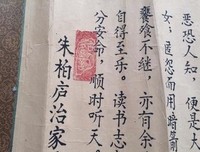 恶恐人知，便是大
女；匿怨而用暗箭
饔飧不继，亦有余
自得至乐。读书志
分安命，顺时听天
朱柏庐治家